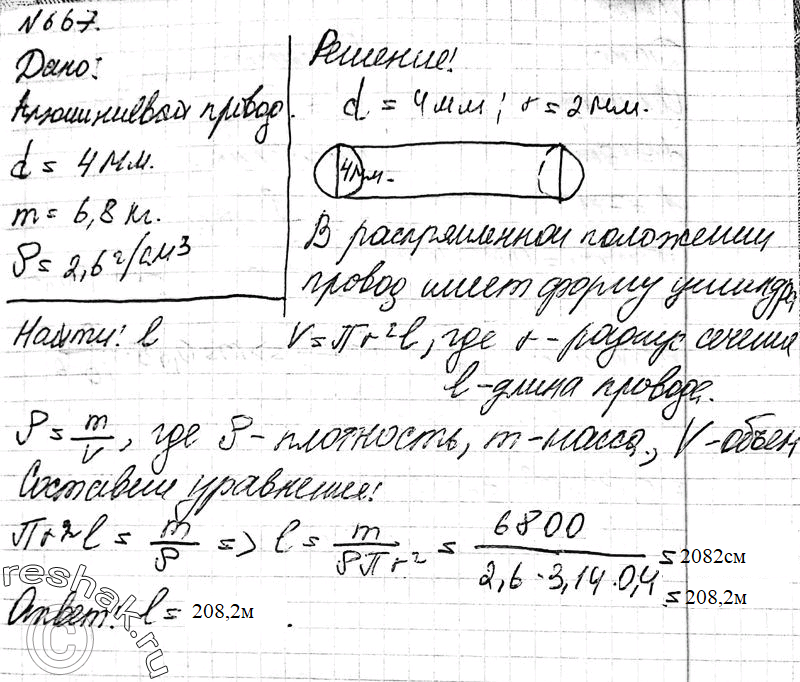 №667.
Дано:
Алюминиевый провод.
d = 4 мм.
m = 6,8 кг.
ρ = 2,6 г/см³
Найти: l
Решение!
d = 4 мм; r = 2 мм.
4 мм.
В распрямленном положении
провод имеет форму цилиндра,
V = πr²l, где r - радиус сечения
l - длина провода.
ρ = m/V, где ρ - плотность, m - масса, V - объем
Составим уравнения!
πr²l = m/ρ => l = m/ρπr² = 6800/2,6·3,14·0,4 = 2082см
= 208,2м
Ответ! l = 208,2м.
© reshak.ru